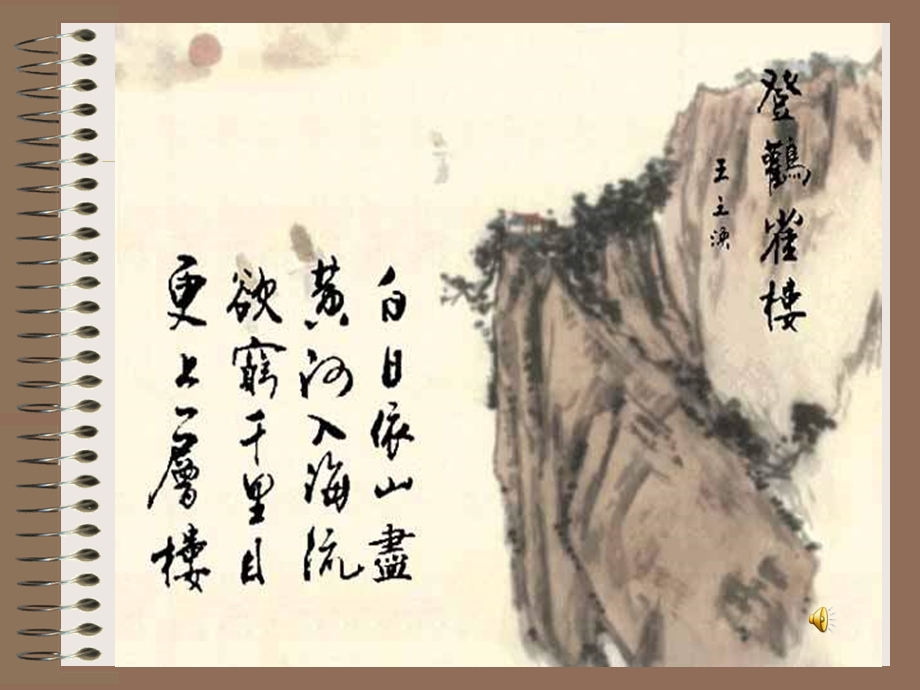 登鸛雀樓
王之渙
白日依山盡
黄河入海流
欲窮千里目
更上一層樓